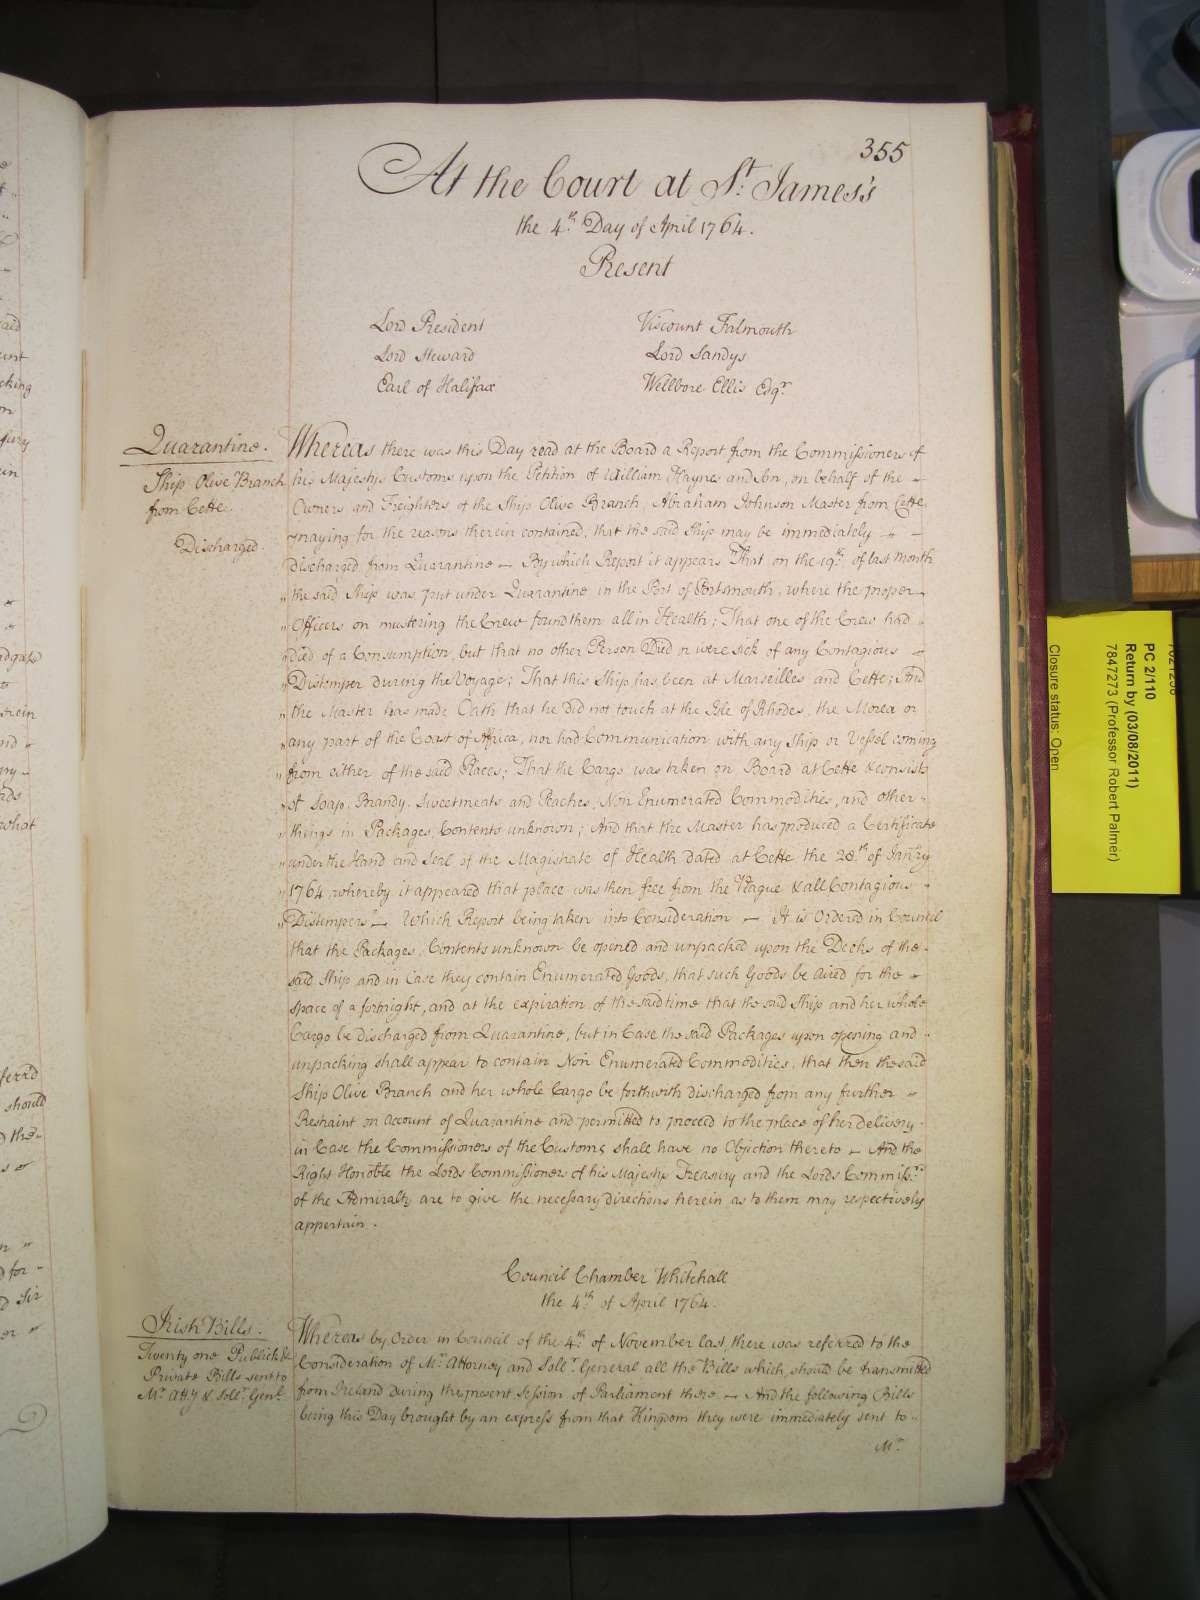 355
At the Court at St. James's
the 4th. Day of April 1764.
Present
Lord President
Lord Steward
Earl of Halifax
Viscount Falmouth
Lord Sandys
Wellbore Ellis Esqr.
Quarantine.
Ship Olive Branch
from Cette.
Discharged.
Whereas there was this Day read at the Board a Report from the Commissioners of
his Majestys Customs upon the Petition of William Haynes and Son, on behalf of the
Owners and Freighters of the Ship Olive Branch, Abraham Johnson Master from Cette,
praying for the reasons therein contained, that the said Ship may be immediately
discharged from Quarantine — By which Report it appears "That on the 19th. of last Month
"the said Ship was put under Quarantine in the Port of Portsmouth, where the proper
"Officers on mustering the Crew found them all in Health; That one of the Crew had
"died of a Consumption, but that no other Person Died or were sick of any Contagious
"Distemper during the Voyage; That this Ship has been at Marseilles and Cette; And
"the Master has made Oath that he did not touch at the Isle of Rhodes, the Morea or
"any part of the Coast of Africa, nor had Communication with any Ship or Vessel coming
"from either of the said Places; That the Cargo was taken on Board at Cette & consists
"of Soap, Brandy, Sweetmeats and Peaches, Non Enumerated Commodities, and other
"things in Packages, Contents unknown; And that the Master has produced a Certificate
"under the Hand and Seal of the Magistrate of Health dated at Cette the 28th. of Janry
"1764 whereby it appeared that place was then free from the Plague & all Contagious
"Distempers" — Which Report being taken into Consideration — It is Ordered in Council
that the Packages, Contents unknown be opened and unpacked upon the Decks of the
said Ship, and in Case they contain Enumerated Goods, that such Goods be aired for the
space of a fortnight, and at the expiration of the said time that the said Ship and her whole
Cargo be discharged from Quarantine, but in Case the said Packages upon opening and
unpacking shall appear to contain Non Enumerated Commodities, that then the said
Ship Olive Branch and her whole Cargo be forthwith discharged from any further
Restraint on account of Quarantine and permitted to proceed to the place of her delivery
in Case the Commissioners of the Customs shall have no Objection thereto — And the
Right Honoble the Lords Commissioners of his Majestys Treasury and the Lords Commissrs.
of the Admiralty are to give the necessary directions herein as to them may respectively
appertain.
Council Chamber Whitehall
the 4th. of April 1764.
Irish Bills.
Twenty one Publick &
Private Bills sent to
Mr. Atty & Sollr. Genl.
Whereas by Order in Council of the 4th. of November last, there was referred to the
Consideration of Mr. Attorney and Sollr. General all the Bills which should be transmitted
from Ireland during the present Session of Parliament there — And the following Bills
being this Day brought by an express from that Kingdom they were immediately sent to
Mr.
PC 2/110
Return by (03/08/2011)
7847273 (Professor Robert Palmer)
Closure status: Open